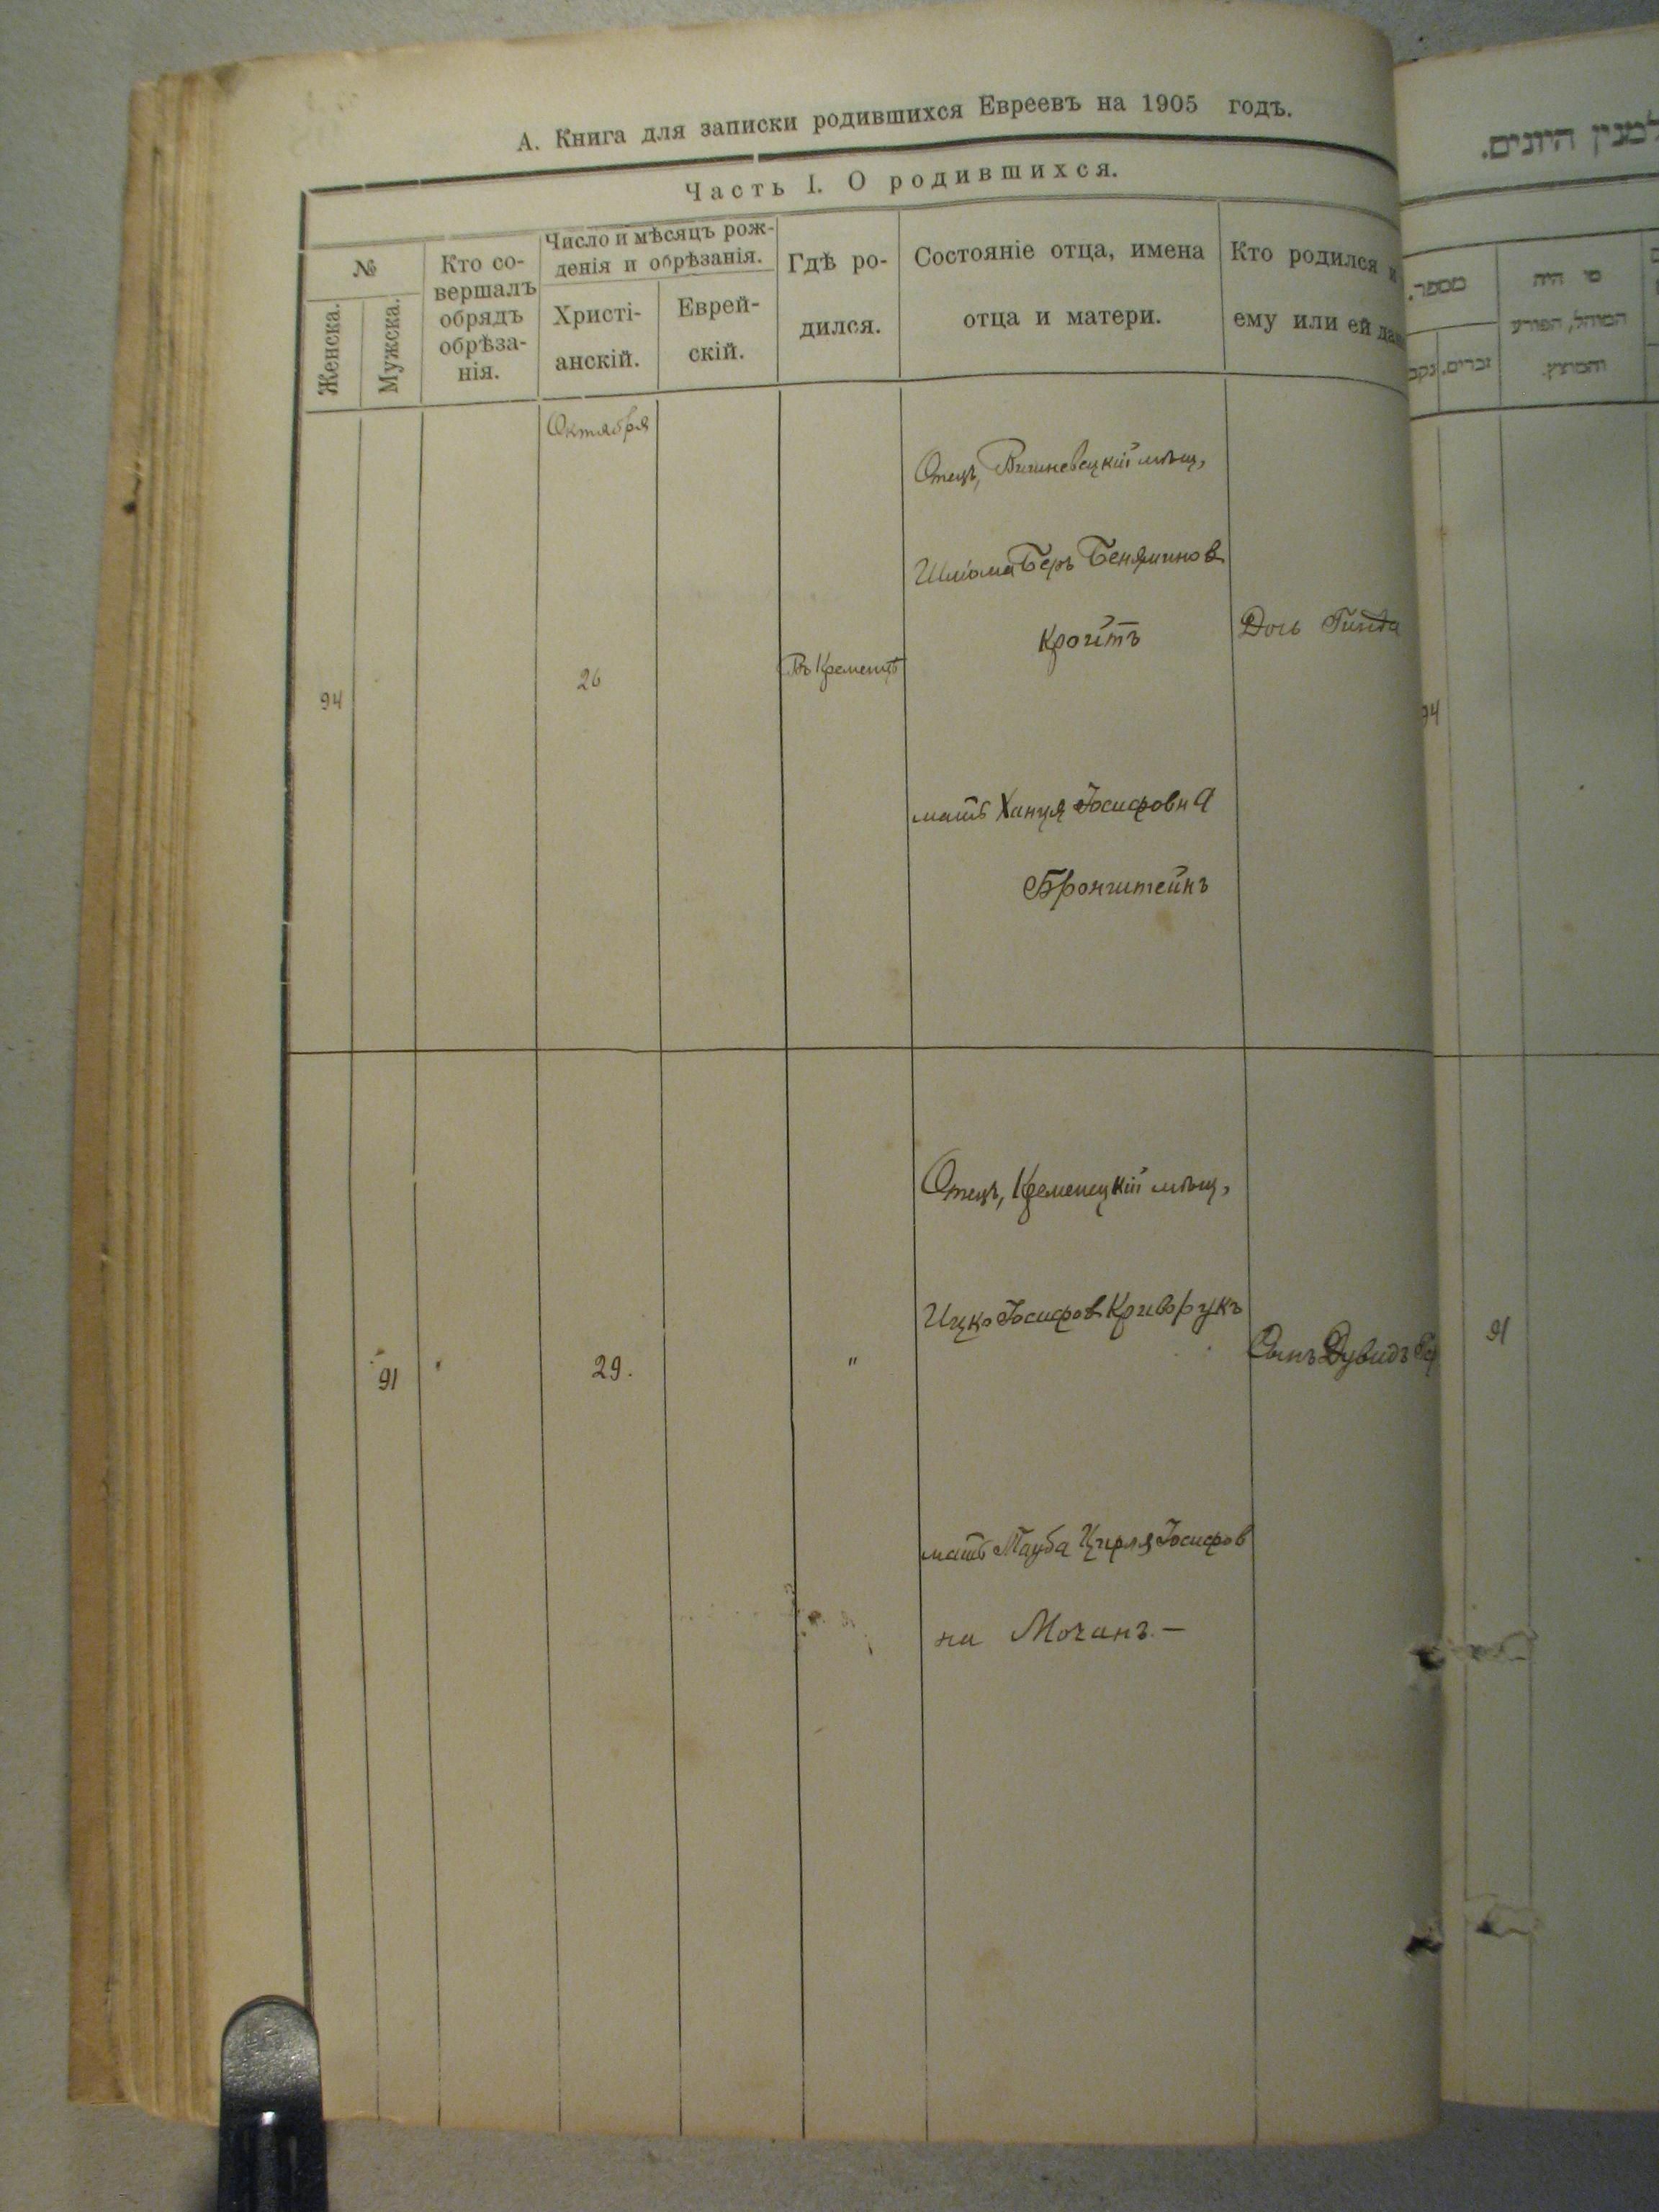 А. Книга для записки родившихся Евреевъ на 1905 годъ.
Часть I. О родившихся.
№
Женска.
Мужска.
Кто со-
вершалъ
обрядъ
обрѣза-
нія.
Число и мѣсяцъ рож-
денія и обрѣзанія.
Христі-
анскій.
Еврей-
скій.
Гдѣ ро-
дился.
Состояніе отца, имена
отца и матери.
Кто родился и
ему или ей
Октября
94
26
Въ Кременцѣ
Отецъ, Вишневецкій мѣщ,
Шліома Беръ Беняминов
Кройтъ
мать Ханця Іосифовна
Бронштейнъ
Дочь
91
29.
"
Отецъ, Кременецкій мѣщ,
Ицко Іосифов Криворукъ
мать Тауба Цирля Іосифов
на Мочанъ.—
Сынъ Дувидъ
למנין היונים.
מספר.
זכרים.
מי היה
המוהל, הפורע
והמוצץ.
94
91